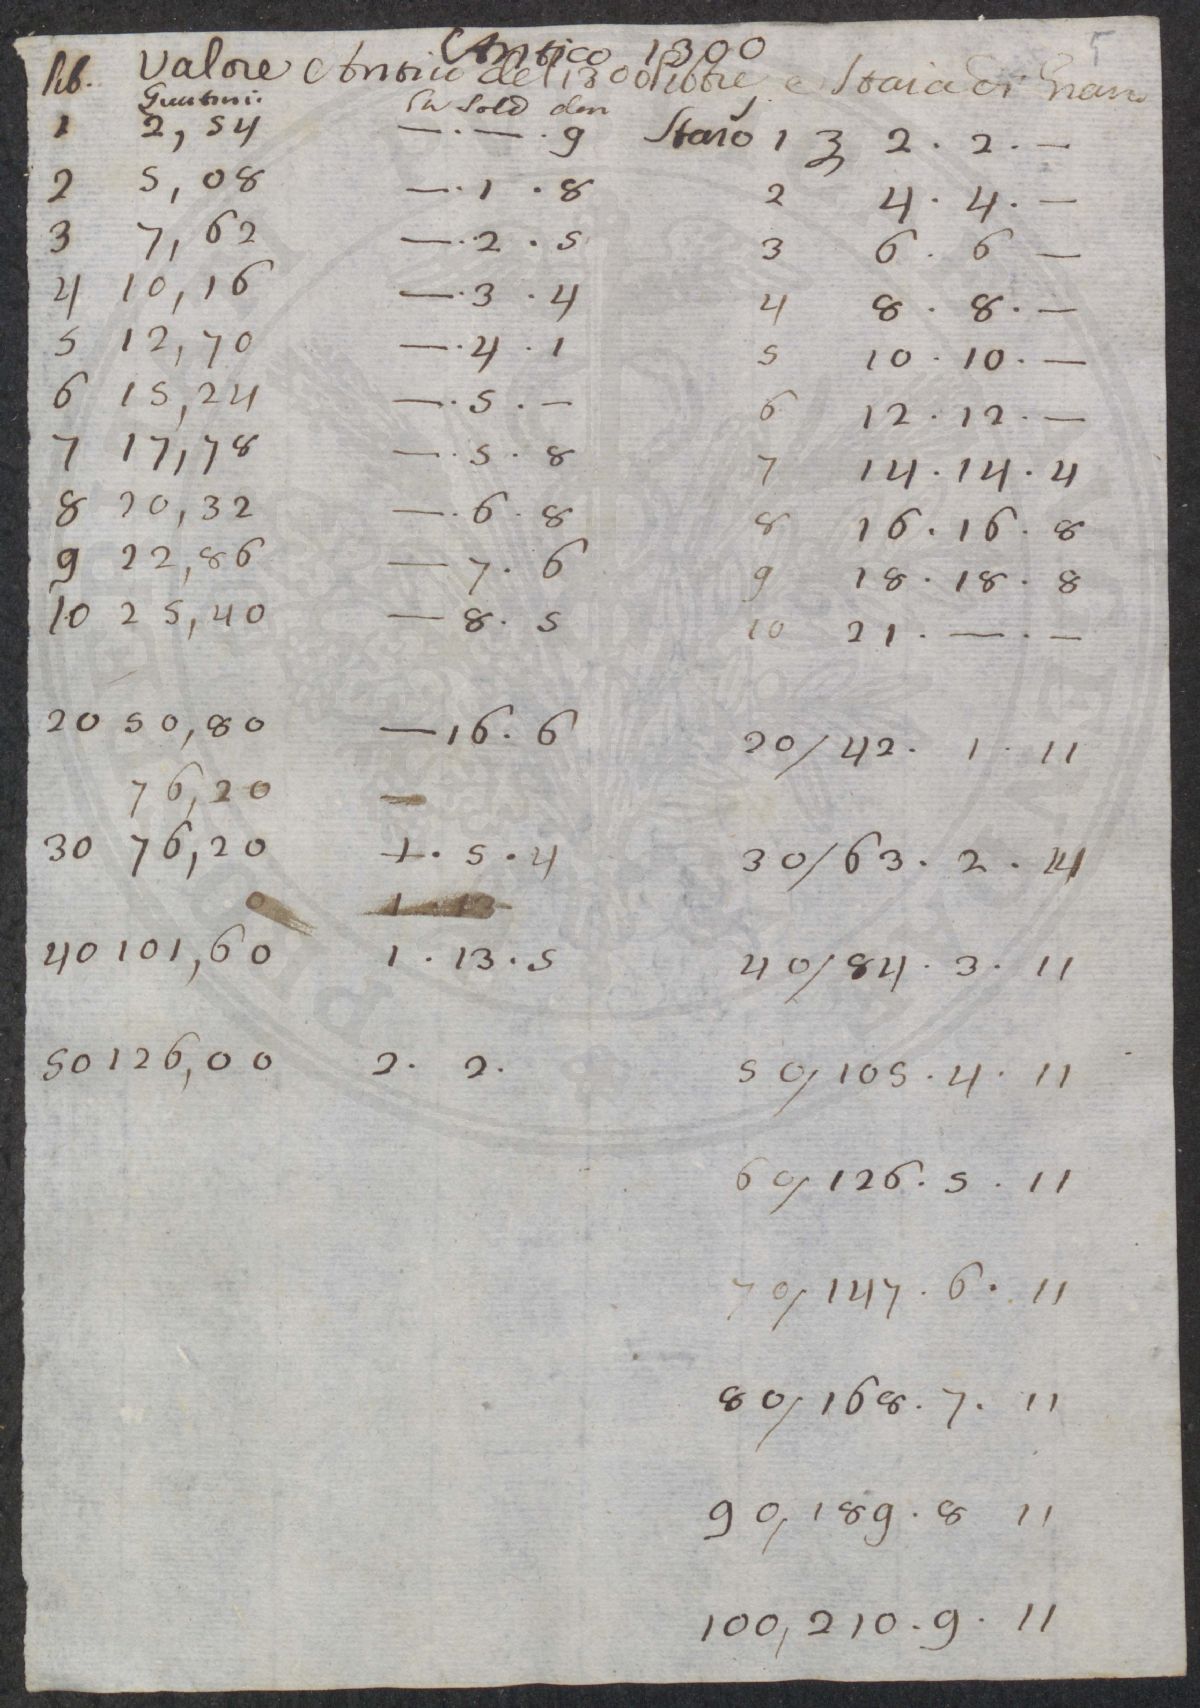 Antico 1300
lib. Valore Antico del 1300 libre e Staia di Grano
5
Sold den
1 2,54 —.—.9 Staio 1 2.2.—
2 5,08 —.1.8 2 4.4.—
3 7,62 —.2.5 3 6.6 —
4 10,16 —.3.4 4 8.8.—
5 12,70 —.4.1 5 10.10.—
6 15,24 —.5.— 6 12.12.—
7 17,78 —.5.8 7 14.14.4
8 20,32 —.6.8 8 16.16.8
9 22,86 — 7.6 9 18.18.8
10 25,40 — 8.5 10 21.—.—
20 50,80 — 16.6 20/42. 1.11
76,20 —
30 76,20 1.5.4 30/63.2.11
0 1.13
40 101,60 1.13.5 40/84.3.11
50 126,00 2.2. 50/105.4.11
60/126.5.11
70/147.6.11
80/168.7.11
90,189.8 11
100,210.9.11